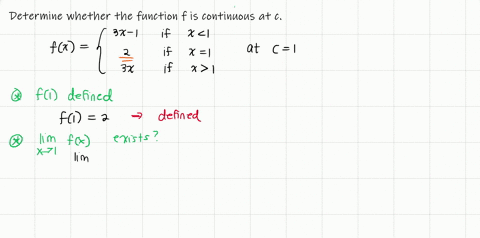 Determine whether the function f is continuous at c.
f(x) = { 3x-1 if x<1
2 if x=1
3x if x>1
at c=1
⊛ f(1) defined
f(1) = 2 → defined
⊛ lim x→1 f(x) exists?
lim